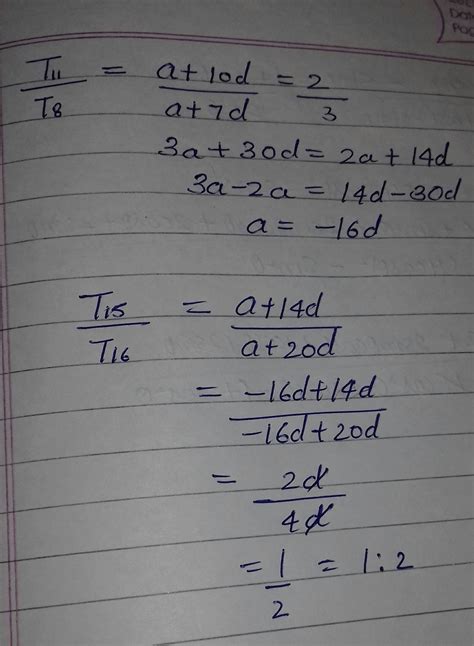 T11 / T8 = a+10d / a+7d = 2 / 3
3a+30d = 2a+14d
3a-2a = 14d-30d
a = -16d
T15 / T16 = a+14d / a+20d
= -16d+14d / -16d+20d
= 2d / 4d
= 1 / 2 = 1:2